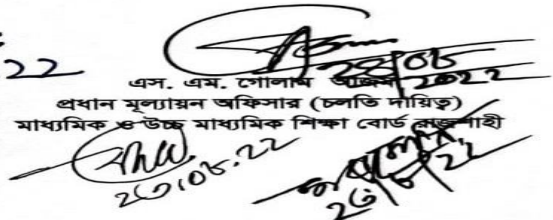 22
২৪/০৮
2022
এস. এম. গোলাম আজম
প্রধান মূল্যায়ন অফিসার (চলতি দায়িত্ব)
মাধ্যমিক ও উচ্চ মাধ্যমিক শিক্ষা বোর্ড রাজশাহী
২৩/০৮.২২
২৩/৮/২২